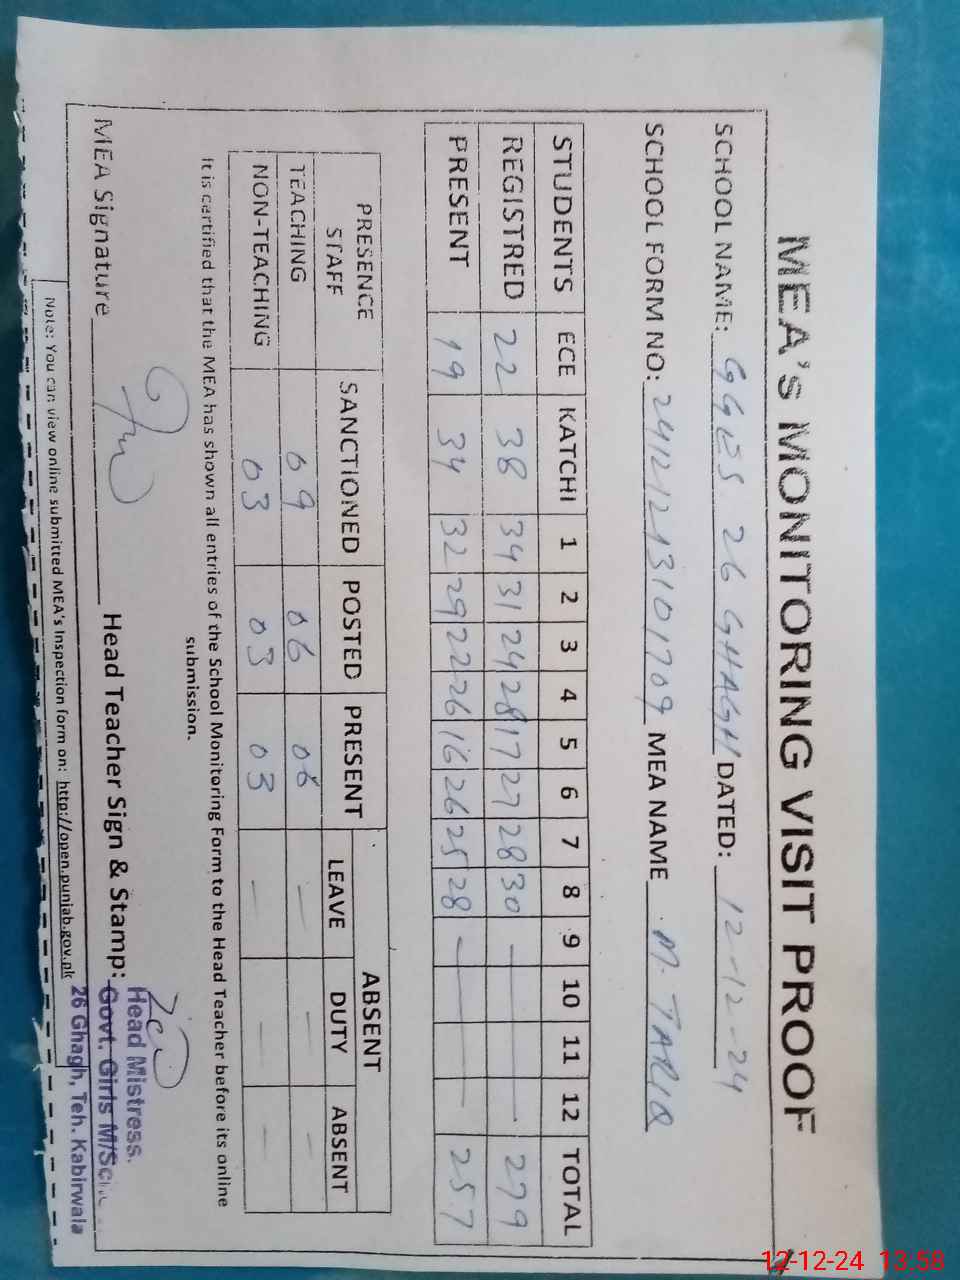 MEA's MONITORING VISIT PROOF
SCHOOL NAME: GGES. 26 GHAGH DATED: 12-12-24
SCHOOL FORM NO: 24121213101709 MEA NAME M. TARIQ
STUDENTS ECE KATCHI 1 2 3 4 5 6 7 8 9 10 11 12 TOTAL
REGISTRED 22 38 34 31 24 28 17 27 28 30 — 279
PRESENT 19 34 32 29 22 26 16 26 25 28 — 257
PRESENCE STAFF SANCTIONED POSTED PRESENT ABSENT
LEAVE DUTY ABSENT
TEACHING 09 06 06 — — —
NON-TEACHING 03 03 03 — — —
It is certified that the MEA has shown all entries of the School Monitoring Form to the Head Teacher before its online
submission.
MEA Signature Head Teacher Sign & Stamp:
Head Mistress.
Govt. Girls
26 Ghagh, Teh. Kabirwala
Note: You can view online submitted MEA's Inspection form on: http://open.punjab.gov.pk
12-12-24 13:58